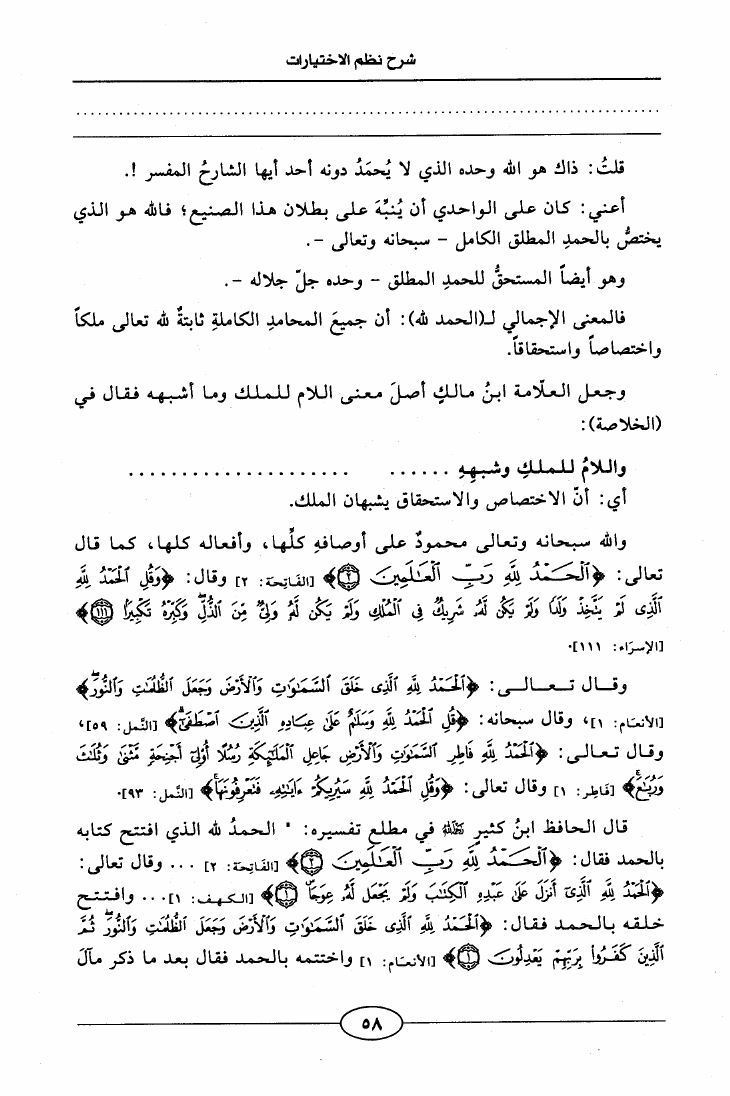 شرح نظم الاختيارات
قلتُ: ذاك هو الله وحده الذي لا يُحمَدُ دونه أحد أيها الشارحُ المفسر !.
أعني: كان على الواحدي أن يُنبِّهَ على بطلان هذا الصنيع؛ فالله هو الذي
يختصُّ بالحمدِ المطلق الكامل – سبحانه وتعالى –.
وهو أيضاً المستحقُّ للحمدِ المطلق – وحده جلّ جلاله –.
فالمعنى الإجمالي لـ(الحمد لله): أن جميعَ المحامدِ الكاملةِ ثابتةٌ لله تعالى ملكاً
واختصاصاً واستحقاقاً.
وجعل العلّامة ابنُ مالكٍ أصلَ معنى اللام للملك وما أشبهه فقال في
(الخلاصة):
واللامُ للملكِ وشبهِهِ ...... .....................
أي: أنّ الاختصاص والاستحقاق يشبهان الملك.
والله سبحانه وتعالى محمودٌ على أوصافهِ كلِّها، وأفعاله كلها، كما قال
تعالى: ﴿ٱلْحَمْدُ لِلَّهِ رَبِّ ٱلْعَٰلَمِينَ ۝٢﴾ [الفَاتِحَة: ٢] وقال: ﴿وَقُلِ ٱلْحَمْدُ لِلَّهِ
ٱلَّذِى لَمْ يَتَّخِذْ وَلَدًا وَلَمْ يَكُن لَّهُۥ شَرِيكٌ فِى ٱلْمُلْكِ وَلَمْ يَكُن لَّهُۥ وَلِىٌّ مِّنَ ٱلذُّلِّ ۖ وَكَبِّرْهُ تَكْبِيرًۢا ۝١١١﴾
[الإسرَاء: ١١١].
وقـال تـعـالـى: ﴿ٱلْحَمْدُ لِلَّهِ ٱلَّذِى خَلَقَ ٱلسَّمَٰوَٰتِ وَٱلْأَرْضَ وَجَعَلَ ٱلظُّلُمَٰتِ وَٱلنُّورَ ۖ﴾
[الأنعَام: ١]، وقال سبحانه: ﴿قُلِ ٱلْحَمْدُ لِلَّهِ وَسَلَٰمٌ عَلَىٰ عِبَادِهِ ٱلَّذِينَ ٱصْطَفَىٰٓ ۗ﴾ [النَّمل: ٥٩]،
وقال تـعـالـى: ﴿ٱلْحَمْدُ لِلَّهِ فَاطِرِ ٱلسَّمَٰوَٰتِ وَٱلْأَرْضِ جَاعِلِ ٱلْمَلَٰٓئِكَةِ رُسُلًا أُو۟لِىٓ أَجْنِحَةٍ مَّثْنَىٰ وَثُلَٰثَ
وَرُبَٰعَ ۚ﴾ [فَاطِر: ١] وقال تعالى: ﴿وَقُلِ ٱلْحَمْدُ لِلَّهِ سَيُرِيكُمْ ءَايَٰتِهِۦ فَتَعْرِفُونَهَا ۚ﴾ [النَّمل: ٩٣].
قال الحافظ ابنُ كثيرٍ رَحِمَهُ اللهُ في مطلع تفسيره: " الحمدُ لله الذي افتتح كتابه
بالحمد فقال: ﴿ٱلْحَمْدُ لِلَّهِ رَبِّ ٱلْعَٰلَمِينَ ۝٢﴾ [الفَاتِحَة: ٢] ... وقال تعالى:
﴿ٱلْحَمْدُ لِلَّهِ ٱلَّذِىٓ أَنزَلَ عَلَىٰ عَبْدِهِ ٱلْكِتَٰبَ وَلَمْ يَجْعَل لَّهُۥ عِوَجَا ۜ ۝١﴾ [الـكـهـف: ١]... وافـتـتـح
خلقه بـالـحـمد فـقال: ﴿ٱلْحَمْدُ لِلَّهِ ٱلَّذِى خَلَقَ ٱلسَّمَٰوَٰتِ وَٱلْأَرْضَ وَجَعَلَ ٱلظُّلُمَٰتِ وَٱلنُّورَ ۖ ثُمَّ
ٱلَّذِينَ كَفَرُوا۟ بِرَبِّهِمْ يَعْدِلُونَ ۝١﴾ [الأنعَام: ١] واختتمه بالحمد فقال بعد ما ذكر مآلَ
٥٨